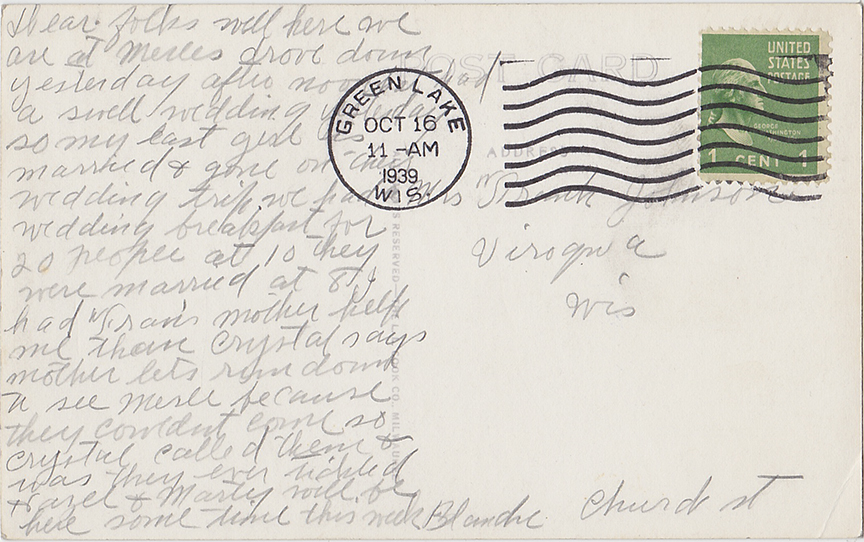 Dear folks well here we
are at Merles drove down
yesterday after noon had
a swell wedding yesterday
so my last girl is
married & gone on their
wedding trip we had
wedding breakfast for
20 people at 10 they
were married at 8 I
had Fran's mother help
me then Crystal says
mother lets run down
to see Merle because
they couldnt come so
Crystal called them &
was they ever tickled
Hazel & Marty will be
here some time this week Blanche
POST CARD
ADDRESS
GREEN LAKE
OCT 16
11-AM
1939
WIS.
UNITED
STATES
POSTAGE
GEORGE
WASHINGTON
1 CENT 1
Mrs Frank Johnson
Viroqua
Wis
Church st
S RESERVED
COOK CO., MILWAU